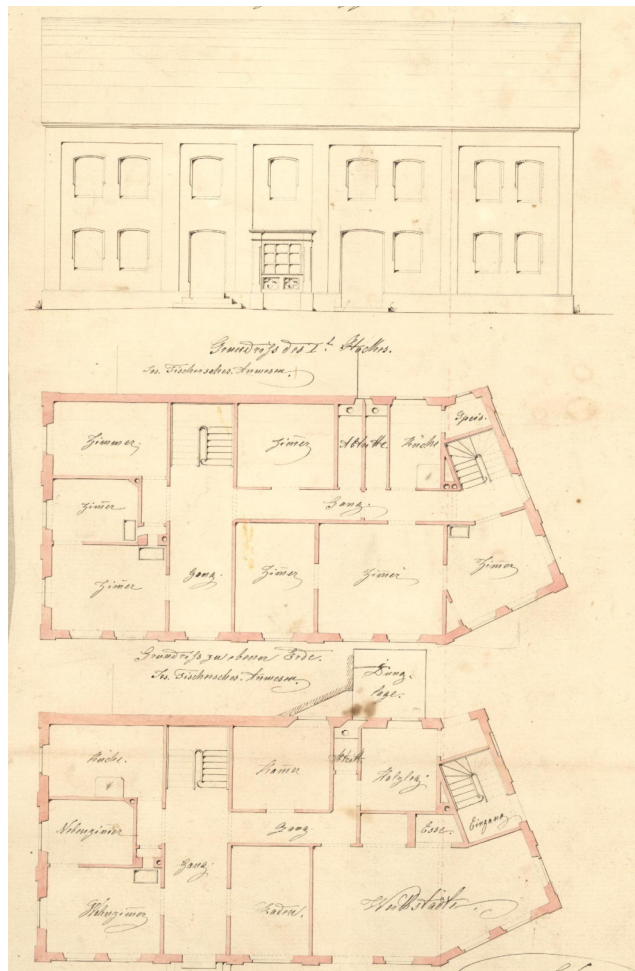 Grundriß des I.t Stockes.
Jos. Fischersches. Anwesen.
Zimmer.
Zim̄er
Abtritte
Küche
Speis.
Gang.
Zim̄er
Zim̄er
Gang.
Zim̄er
Zim̄er
Zim̄er
Grundriß zu ebener Erde.
Jos. Fischersches. Anwesen.
Dung-
lage.
Küche.
Kam̄er
Abtritt
Holzlag.
Nebenzim̄er
Gang
Esse.
Eingang
Gang.
Wohnzim̄er
Laden.
Werkstätte.